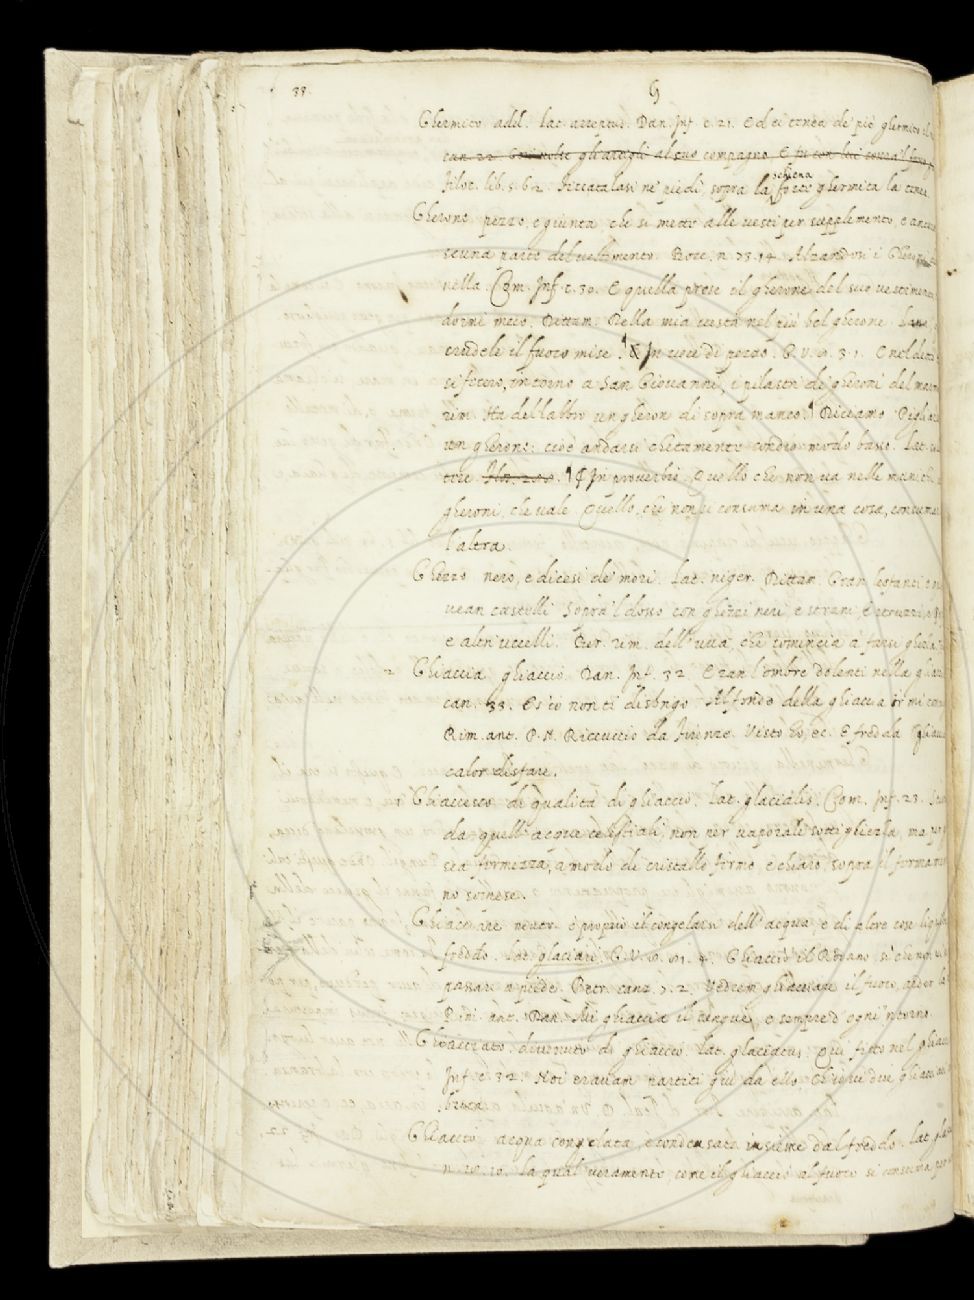 38. G
Ghermito add. Lat. arreptus. Dan. Inf. c. 21. Ed ei tenea de' piè ghermito
can. 22. gli artigli al suo compagno, E fu con lui sovra'l fosso
Filoc. lib. 5. 62. Ficcatalasi ne' piedi, sopra la schiena forte ghermita la tenea
Gherone pezzo, e giunta che si mette alle vesti per supplemento, e anco
è una parte del vestimento. Bocc. n. 75. 14. Alzandosi i Gheroni
nella. Com. Inf. c. 30. E quella prese il gherone del suo vestimento
dormì meco. Dittam. Della mia vesta nel più bel gherone
crudele il fuoco mise. ¶ In vece di pezzo. G. V. 3. 1. E nel detto
si fecero, intorno a San Giovanni, i pilastri de' gheroni del
rim. Ha del labbro un gheron di sopra manco. ¶ Diciamo Pigliarsi
un gherone: cioè andarsi chetamente Lat.
¶ In proverbio, Quello che non va nelle maniche
gheroni, che vale Quello, che non si consuma in una cosa, consumasi
l'altra.
Ghezzo nero, e dicesi de' mori. Lat. niger. Dittam. Gran leofanti
vean castelli Sopra 'l dosso con ghezzi neri, e strani, E struzzi,
e altri uccelli. Bur. rim. dell' uva, che comincia a farsi ghezza
2 Ghiaccia ghiaccio. Dan. Inf. 32. Eran l'ombre dolenti nella ghiaccia
can. 33. E s'io non ti disbrigo Al fondo della ghiaccia ir mi
Rim. ant. P. N. Riccuccio da Firenze. Visto ho, ec. E fredda
calor disfare.
1 Ghiaccesco di qualità di ghiaccio. Lat. glacialis. Com. Inf. 23.
da quell' acque celestiali, non per vaporale sottiglierza, ma
sea fermezza, a modo di cristallo fermo, e chiaro, sopra il
no sospese.
Ghiacciare neutr. è proprio il congelarsi dell' acqua, e di altre cose liquide
freddo. Lat. glaciari. G. V. 4. Ghiacciò il Rodano, sì che
passare a piede. Petr. canz. 7. 2. Vedrem ghiacciare il fuoco, arder la
Rim. ant. Dan. Mi ghiaccia il sangue, e sempre d' ogni
Ghiacciato. divenuto di ghiaccio. Lat. glaciatus. Qui fitto nel ghiaccio
Inf. c. 32. Noi eravam partiti già da ello, Ch'io vidi due ghiacciati
buca
Ghiaccio acqua congelata, e condensata insieme dal freddo. Lat.
n. 10. 10. la qual veramente come il ghiaccio al fuoco si consuma